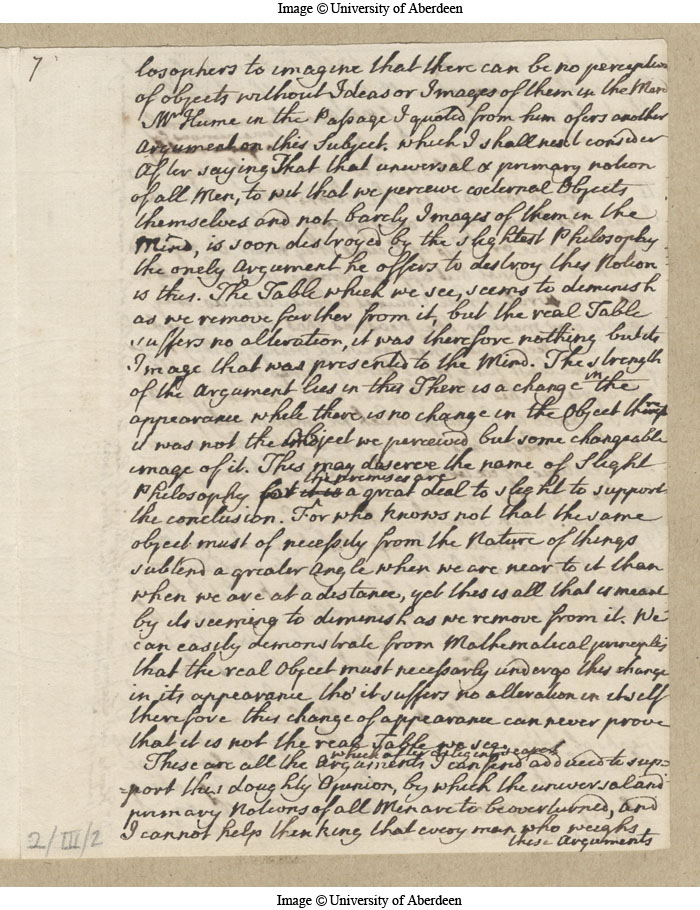 Image © University of Aberdeen
7
losophers to imagine that there can be no perception
of objects without Ideas or Images of them in the Mind
Mr Hume in the Passage I quoted from him offers another
Argument on this Subject. which I shall next consider
After saying That that universal & primary notion
of all Men, to wit that we perceive external Objects
themselves and not barely Images of them in the
Mind, is soon destroyed by the slightest Philosophy
the onely Argument he offers to destroy this Notion
is this. The Table which we see, seems to diminish
as we remove farther from it, but the real Table
suffers no alteration, it was therefore nothing but its
Image that was presented to the Mind. The strength
of the Argument lies in this There is a change in the
appearance while there is no change in the Object therefore
it was not the Object we perceived but some changeable
image of it. This may deserve the name of Slight
Philosophy but it is the premises are a great deal to slight to support
the conclusion. For who knows not that the same
object must of necessity from the Nature of things
subtend a greater Angle when we are near to it than
when we are at a distance, yet this is all that is meant
by its seeming to diminish as we remove from it. We
can easily demonstrate from Mathematical principles
that the real Object must necessarly undergo this change
in its appearance tho' it suffers no alteration in itself
therefore this change of appearance can never prove
that it is not the real Table we see.
These are all the Arguments which after diligent search I can find adduced to sup=
=port this doughty Opinion, by which the universal and
primary Notions of all Men are to be overturned, and
I cannot help thinking that every man who weighs
these Arguments
2/III/2
Image © University of Aberdeen